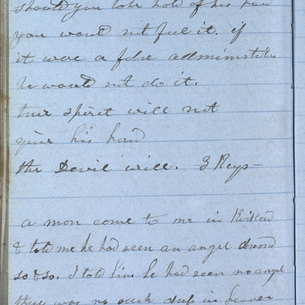 should you take hold of his hand
you would not feel it. if
it was a false administer
he would not do it.
true spirit will not
give his hand
the Devil will. 3 Keys—
a man come to me in Kirtland
& told me he had seen an angel dressed
so & so. I told him he had seen no angel
there was no such dress in heaven